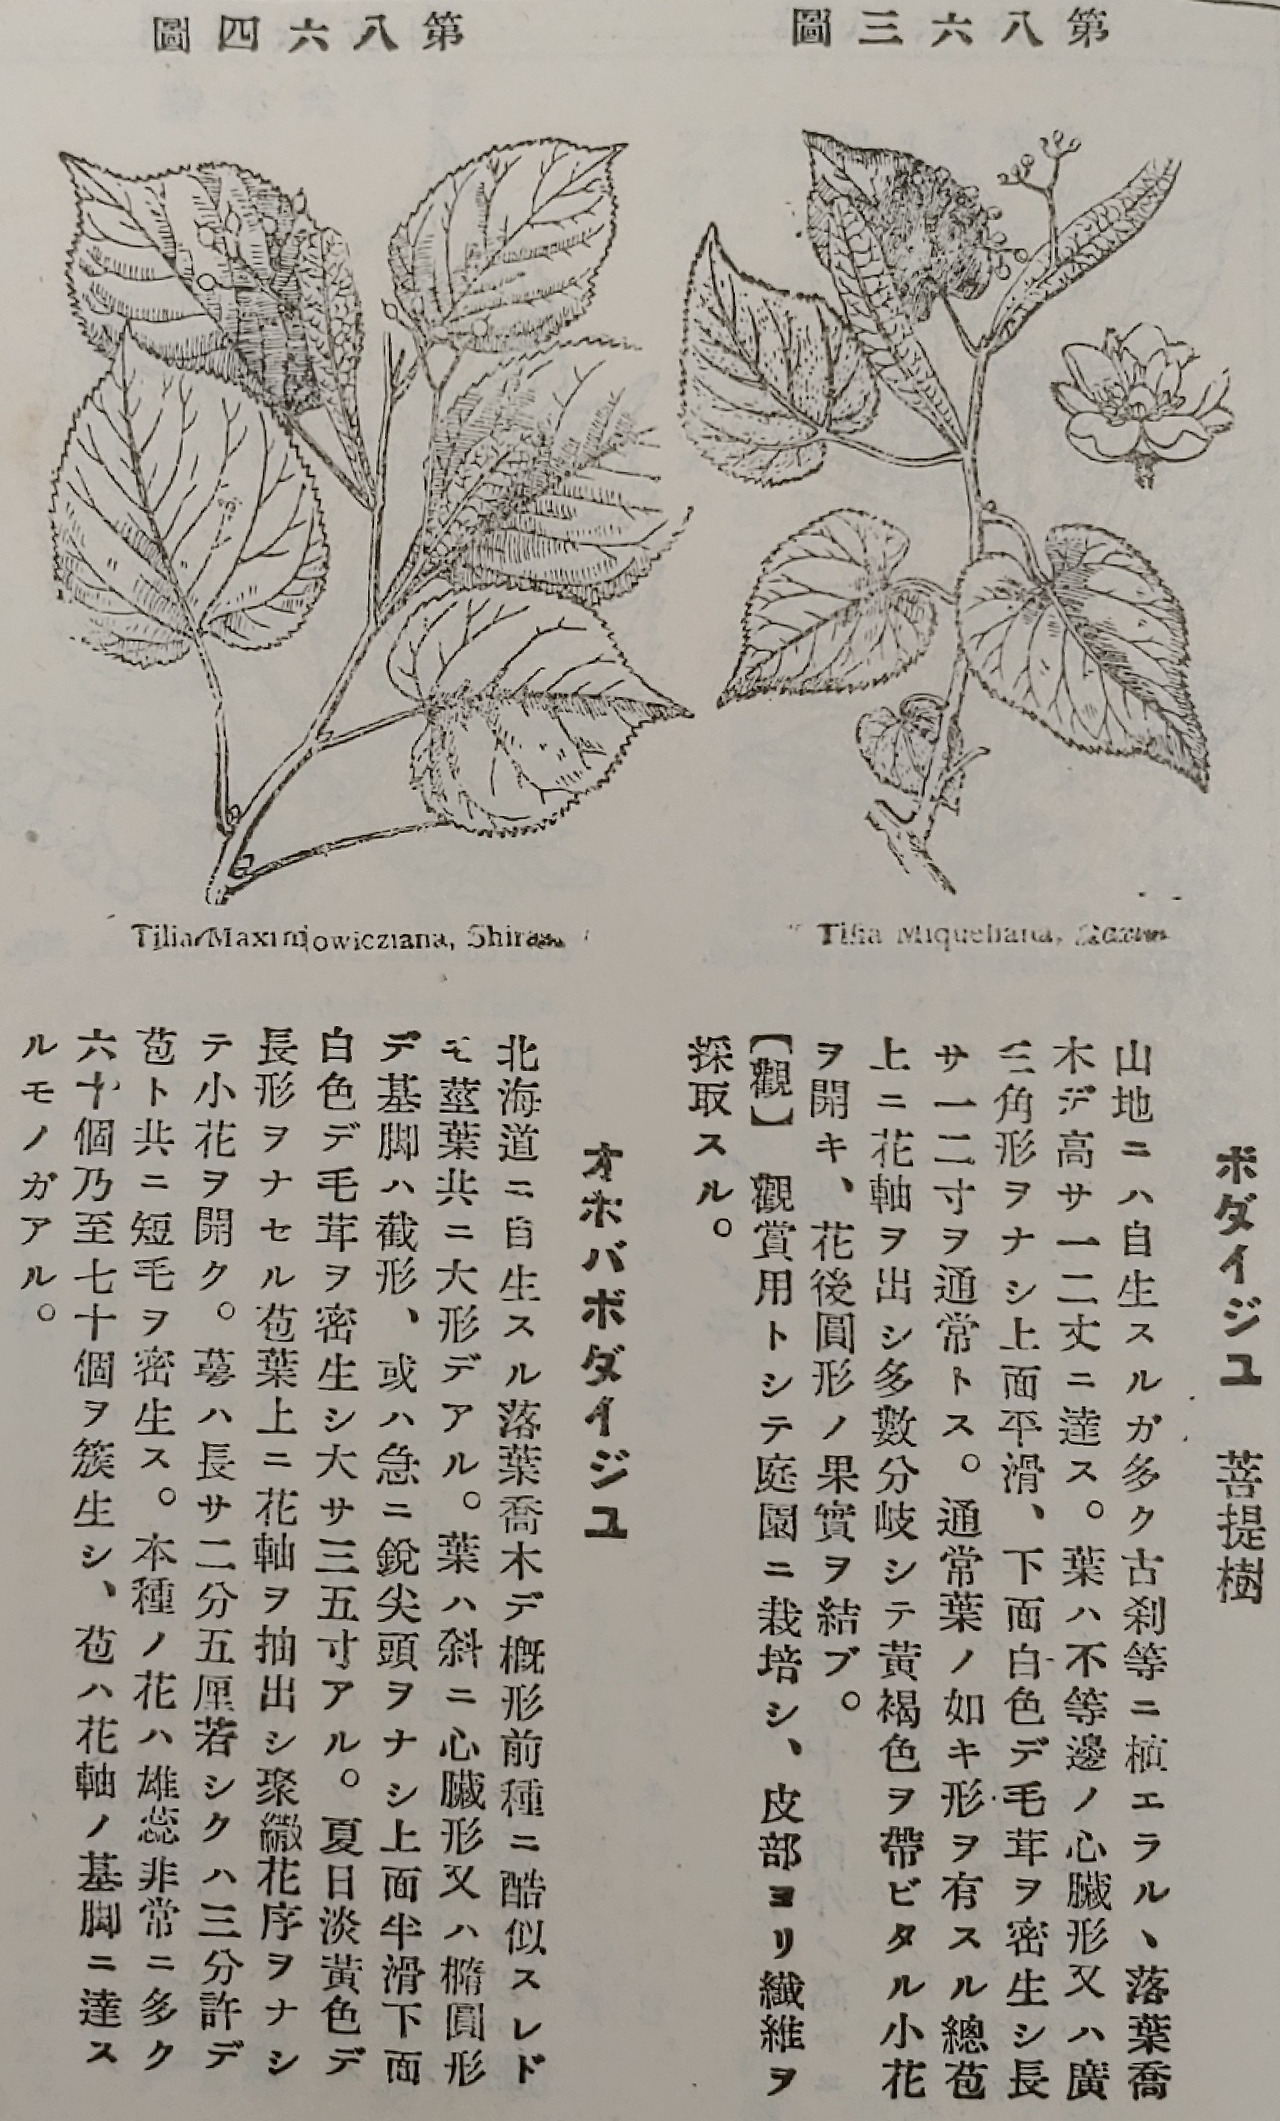 第八六三圖
Tilia Miqueliana,
ボダイジユ 菩提樹
山地ニハ自生スルガ多ク古刹等ニ植エラル、落葉喬
木デ高サ一二丈ニ達ス。葉ハ不等邊ノ心臟形又ハ廣
三角形ヲナシ上面平滑、下面白色デ毛茸ヲ密生シ長
サ一二寸ヲ通常トス。通常葉ノ如キ形ヲ有スル總苞
上ニ花軸ヲ出シ多數分岐シテ黃褐色ヲ帶ビタル小花
ヲ開キ、花後圓形ノ果實ヲ結ブ。
【觀】 觀賞用トシテ庭園ニ栽培シ、皮部ヨリ纖維ヲ
採取スル。
第八六四圖
Tilia Maximowicziana, Shiras.
オホバボダイジユ
北海道ニ自生スル落葉喬木デ槪形前種ニ酷似スレド
モ莖葉共ニ大形デアル。葉ハ斜ニ心臟形又ハ橢圓形
デ基脚ハ截形、或ハ急ニ銳尖頭ヲナシ上面半滑下面
白色デ毛茸ヲ密生シ大サ三五寸アル。夏日淡黃色デ
長形ヲナセル苞葉上ニ花軸ヲ抽出シ聚繖花序ヲナシ
テ小花ヲ開ク。萼ハ長サ二分五厘若シクハ三分許デ
苞ト共ニ短毛ヲ密生ス。本種ノ花ハ雄蕊非常ニ多ク
六十個乃至七十個ヲ簇生シ、苞ハ花軸ノ基脚ニ達ス
ルモノガアル。